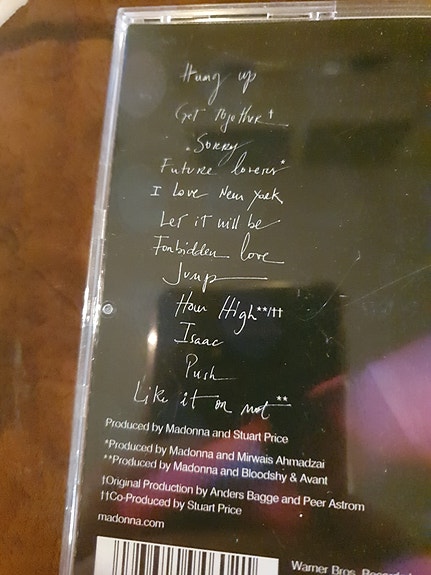 Hung up
Get Together†
Sorry
Future lovers*
I Love New York
Let it will be
Forbidden love
Jump
How High**/††
Isaac
Push
Like it or not**
Produced by Madonna and Stuart Price
*Produced by Madonna and Mirwais Ahmadzai
**Produced by Madonna and Bloodshy & Avant
†Original Production by Anders Bagge and Peer Astrom
††Co-Produced by Stuart Price
madonna.com
Warner Bros.